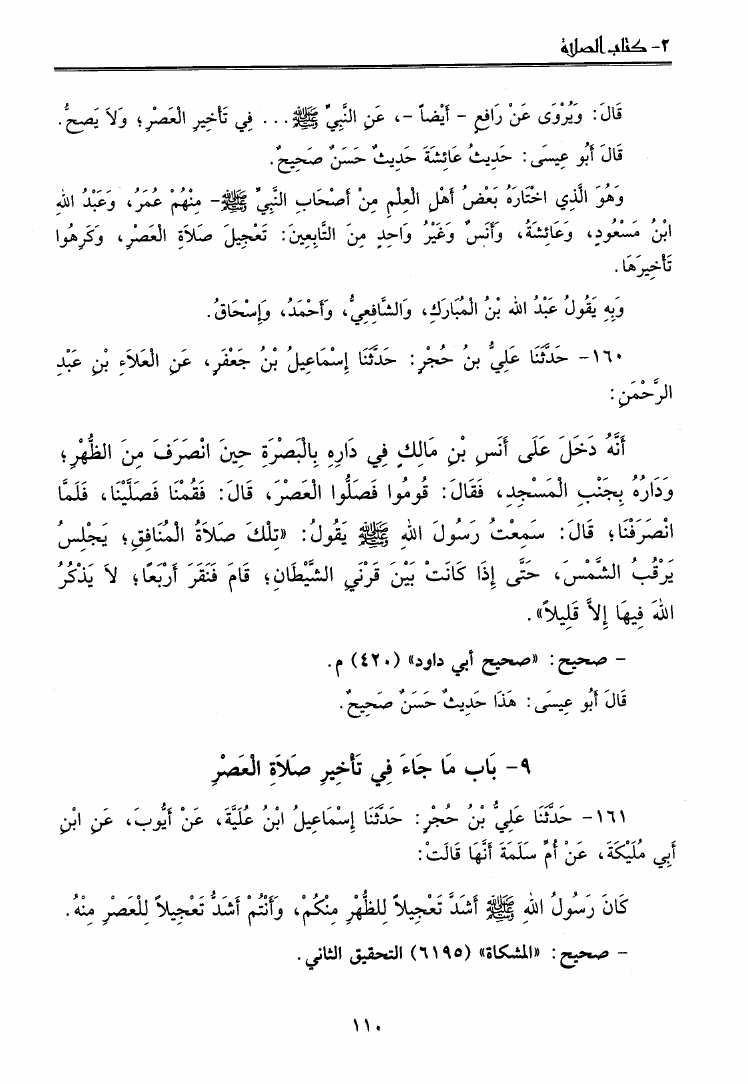 ٢- كتاب الصلاة
قَالَ: وَيُرْوَى عَنْ رَافِعٍ - أَيْضاً -، عَنِ النَّبِيِّ ﷺ... فِي تَأْخِيرِ الْعَصْرِ؛ وَلاَ يَصحُّ.
قَالَ أَبُو عِيسَى: حَدِيثُ عَائِشَةَ حَدِيثٌ حَسَنٌ صَحِيحٌ.
وَهُوَ الَّذِي اخْتَارَهُ بَعْضُ أَهْلِ الْعِلْمِ مِنْ أَصْحَابِ النَّبِيِّ ﷺ- مِنْهُمْ عُمَرُ، وَعَبْدُ اللهِ
ابْنُ مَسْعُودٍ، وَعَائِشَةُ، وَأَنَسٌ وَغَيْرُ وَاحِدٍ مِنَ التَّابِعِينَ: تَعْجِيلَ صَلاَةِ الْعَصْرِ، وَكَرِهُوا
تَأْخِيرَهَا.
وَبِهِ يَقُولُ عَبْدُ الله بْنُ الْمُبَارَكِ، وَالشَّافِعِيُّ، وَأَحْمَدُ، وَإِسْحَاقُ.
١٦٠- حَدَّثَنَا عَلِيُّ بْنُ حُجْرٍ: حَدَّثَنَا إِسْمَاعِيلُ بْنُ جَعْفَرٍ، عَنِ الْعَلاَءِ بْنِ عَبْدِ
الرَّحْمَنِ:
أَنَّهُ دَخَلَ عَلَى أَنَسِ بْنِ مَالِكٍ فِي دَارِهِ بِالْبَصْرَةِ حِينَ انْصَرَفَ مِنَ الظُّهْرِ؛
وَدَارُهُ بِجَنْبِ الْمَسْجِدِ، فَقَالَ: قُومُوا فَصَلُّوا الْعَصْرَ، قَالَ: فَقُمْنَا فَصَلَّيْنَا، فَلَمَّا
انْصَرَفْنَا؛ قَالَ: سَمِعْتُ رَسُولَ اللهِ ﷺ يَقُولُ: «تِلْكَ صَلاَةُ الْمُنَافِقِ؛ يَجْلِسُ
يَرْقُبُ الشَّمْسَ، حَتَّى إِذَا كَانَتْ بَيْنَ قَرْنَيِ الشَّيْطَانِ؛ قَامَ فَنَقَرَ أَرْبَعًا؛ لاَ يَذْكُرُ
اللهَ فِيهَا إِلاَّ قَلِيلاً».
- صحيح: «صحيح أبي داود» (٤٢٠) م.
قَالَ أَبُو عِيسَى: هَذَا حَدِيثٌ حَسَنٌ صَحِيحٌ.
٩- بَاب مَا جَاءَ فِي تَأْخِيرِ صَلاَةِ الْعَصْرِ
١٦١- حَدَّثَنَا عَلِيُّ بْنُ حُجْرٍ: حَدَّثَنَا إِسْمَاعِيلُ ابْنُ عُلَيَّةَ، عَنْ أَيُّوبَ، عَنِ ابْنِ
أَبِي مُلَيْكَةَ، عَنْ أُمِّ سَلَمَةَ أَنَّهَا قَالَتْ:
كَانَ رَسُولُ اللهِ ﷺ أَشَدَّ تَعْجِيلاً لِلظُّهْرِ مِنْكُمْ، وَأَنْتُمْ أَشَدُّ تَعْجِيلاً لِلْعَصْرِ مِنْهُ.
- صحيح: «المشكاة» (٦١٩٥) التحقيق الثاني.
١١٠